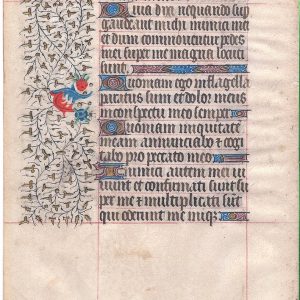 Quia dixi nequando sup
gaudeant michi inimici mei
et dum commoventur pedes
mei super me magna locuti
sunt
Quoniam ego in flagella
paratus sum et dolor meus
in conspectu meo semper
Quoniam iniquitatē
meam annunciabo et cogi
tabo pro peccato meo
Inimici autem mei vi
vunt et confirmati sunt su
per me et multiplicati sūt
qui oderunt me iniq̄